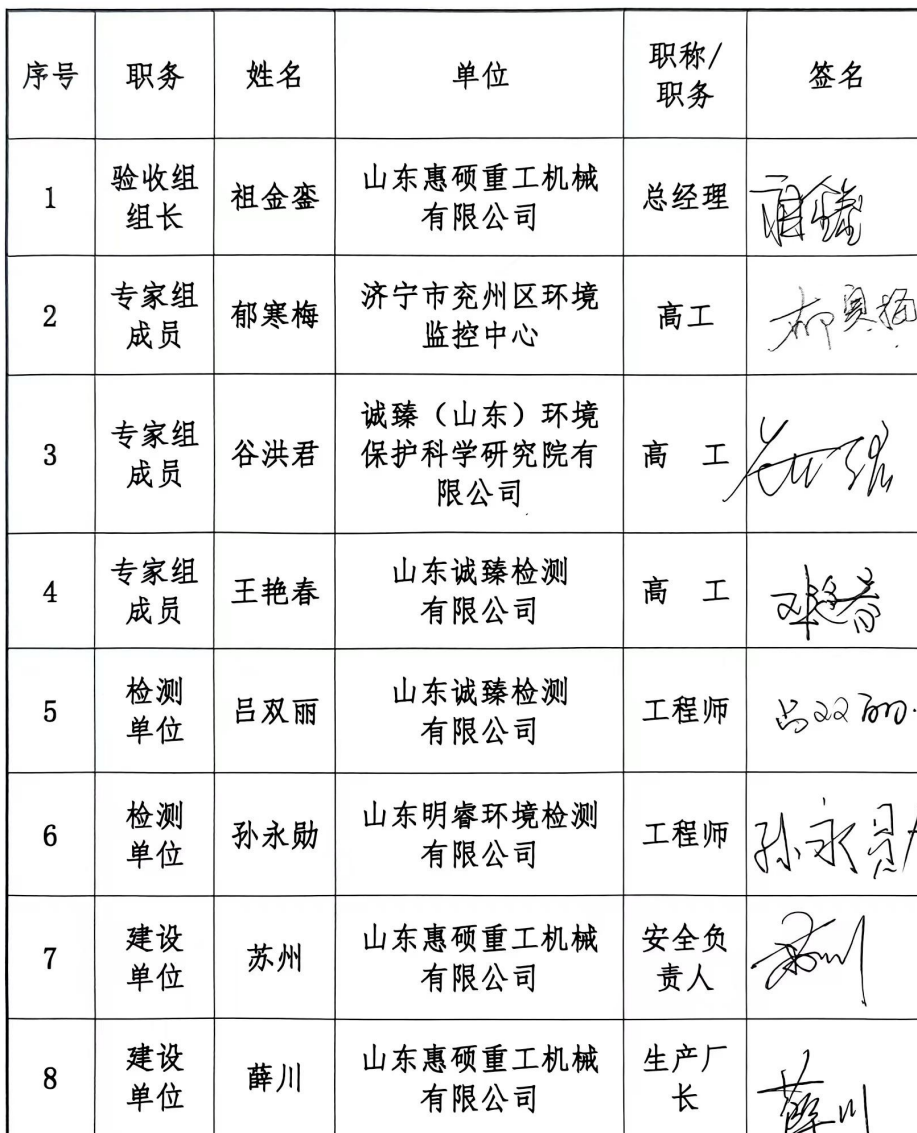 序号 职务 姓名 单位 职称/
职务 签名
1 验收组
组长 祖金銮 山东惠硕重工机械
有限公司 总经理
2 专家组
成员 郁寒梅 济宁市兖州区环境
监控中心 高工
3 专家组
成员 谷洪君 诚臻（山东）环境
保护科学研究院有
限公司 高 工
4 专家组
成员 王艳春 山东诚臻检测
有限公司 高 工
5 检测
单位 吕双丽 山东诚臻检测
有限公司 工程师 吕双丽
6 检测
单位 孙永勋 山东明睿环境检测
有限公司 工程师 孙永勋
7 建设
单位 苏州 山东惠硕重工机械
有限公司 安全负
责人
8 建设
单位 薛川 山东惠硕重工机械
有限公司 生产厂
长 薛川